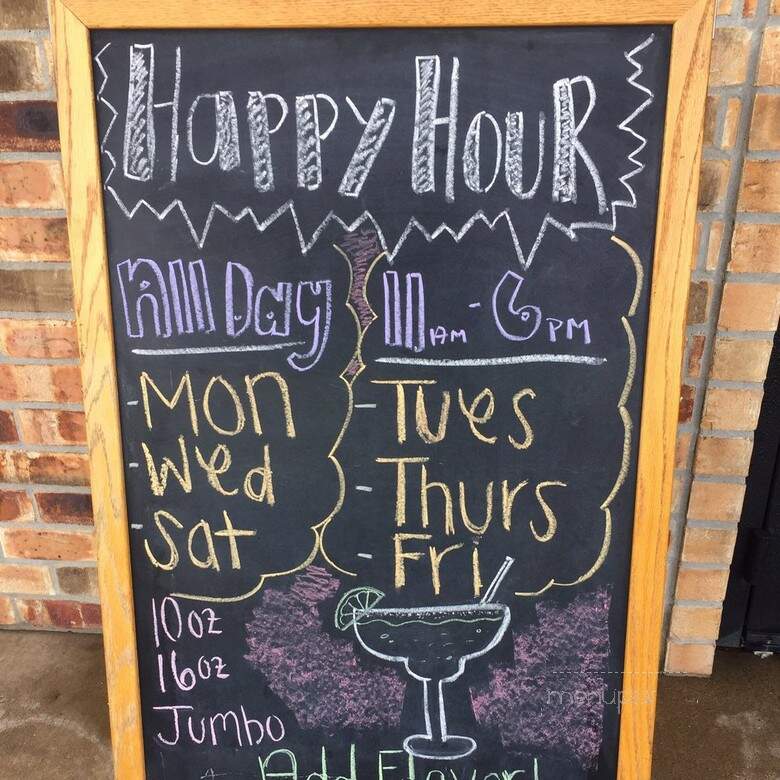 Happy Hour
All Day
Mon
Wed
Sat
11AM - 6PM
- Tues
- Thurs
- Fri
10oz
16oz
Jumbo
Add Flavor!